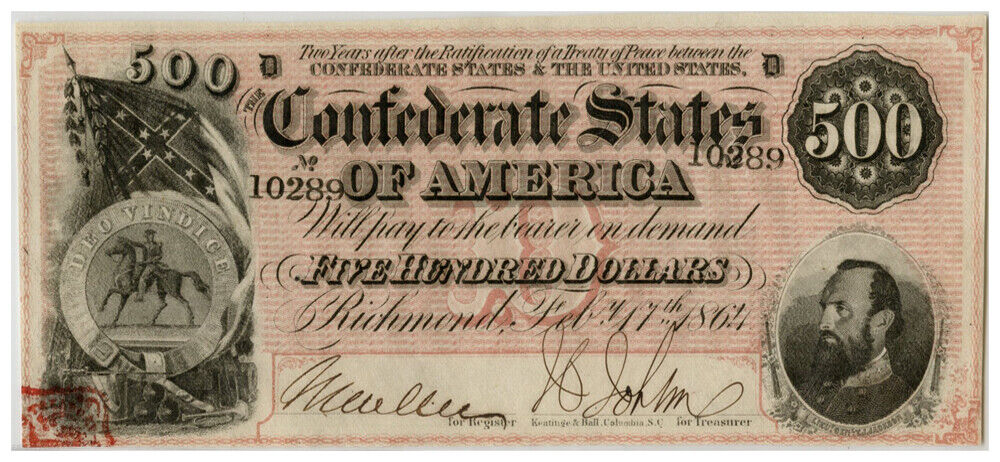 500
D
Two Years after the Ratification of a Treaty of Peace between the
CONFEDERATE STATES & THE UNITED STATES,
D
THE
Confederate States
500
No
10289
10289
OF AMERICA
DEO VINDICE
Will pay to the bearer on demand
FIVE HUNDRED DOLLARS
Richmond, Feby. 17th 1864
for Register
Keatinge & Ball, Columbia, S.C.
for Treasurer